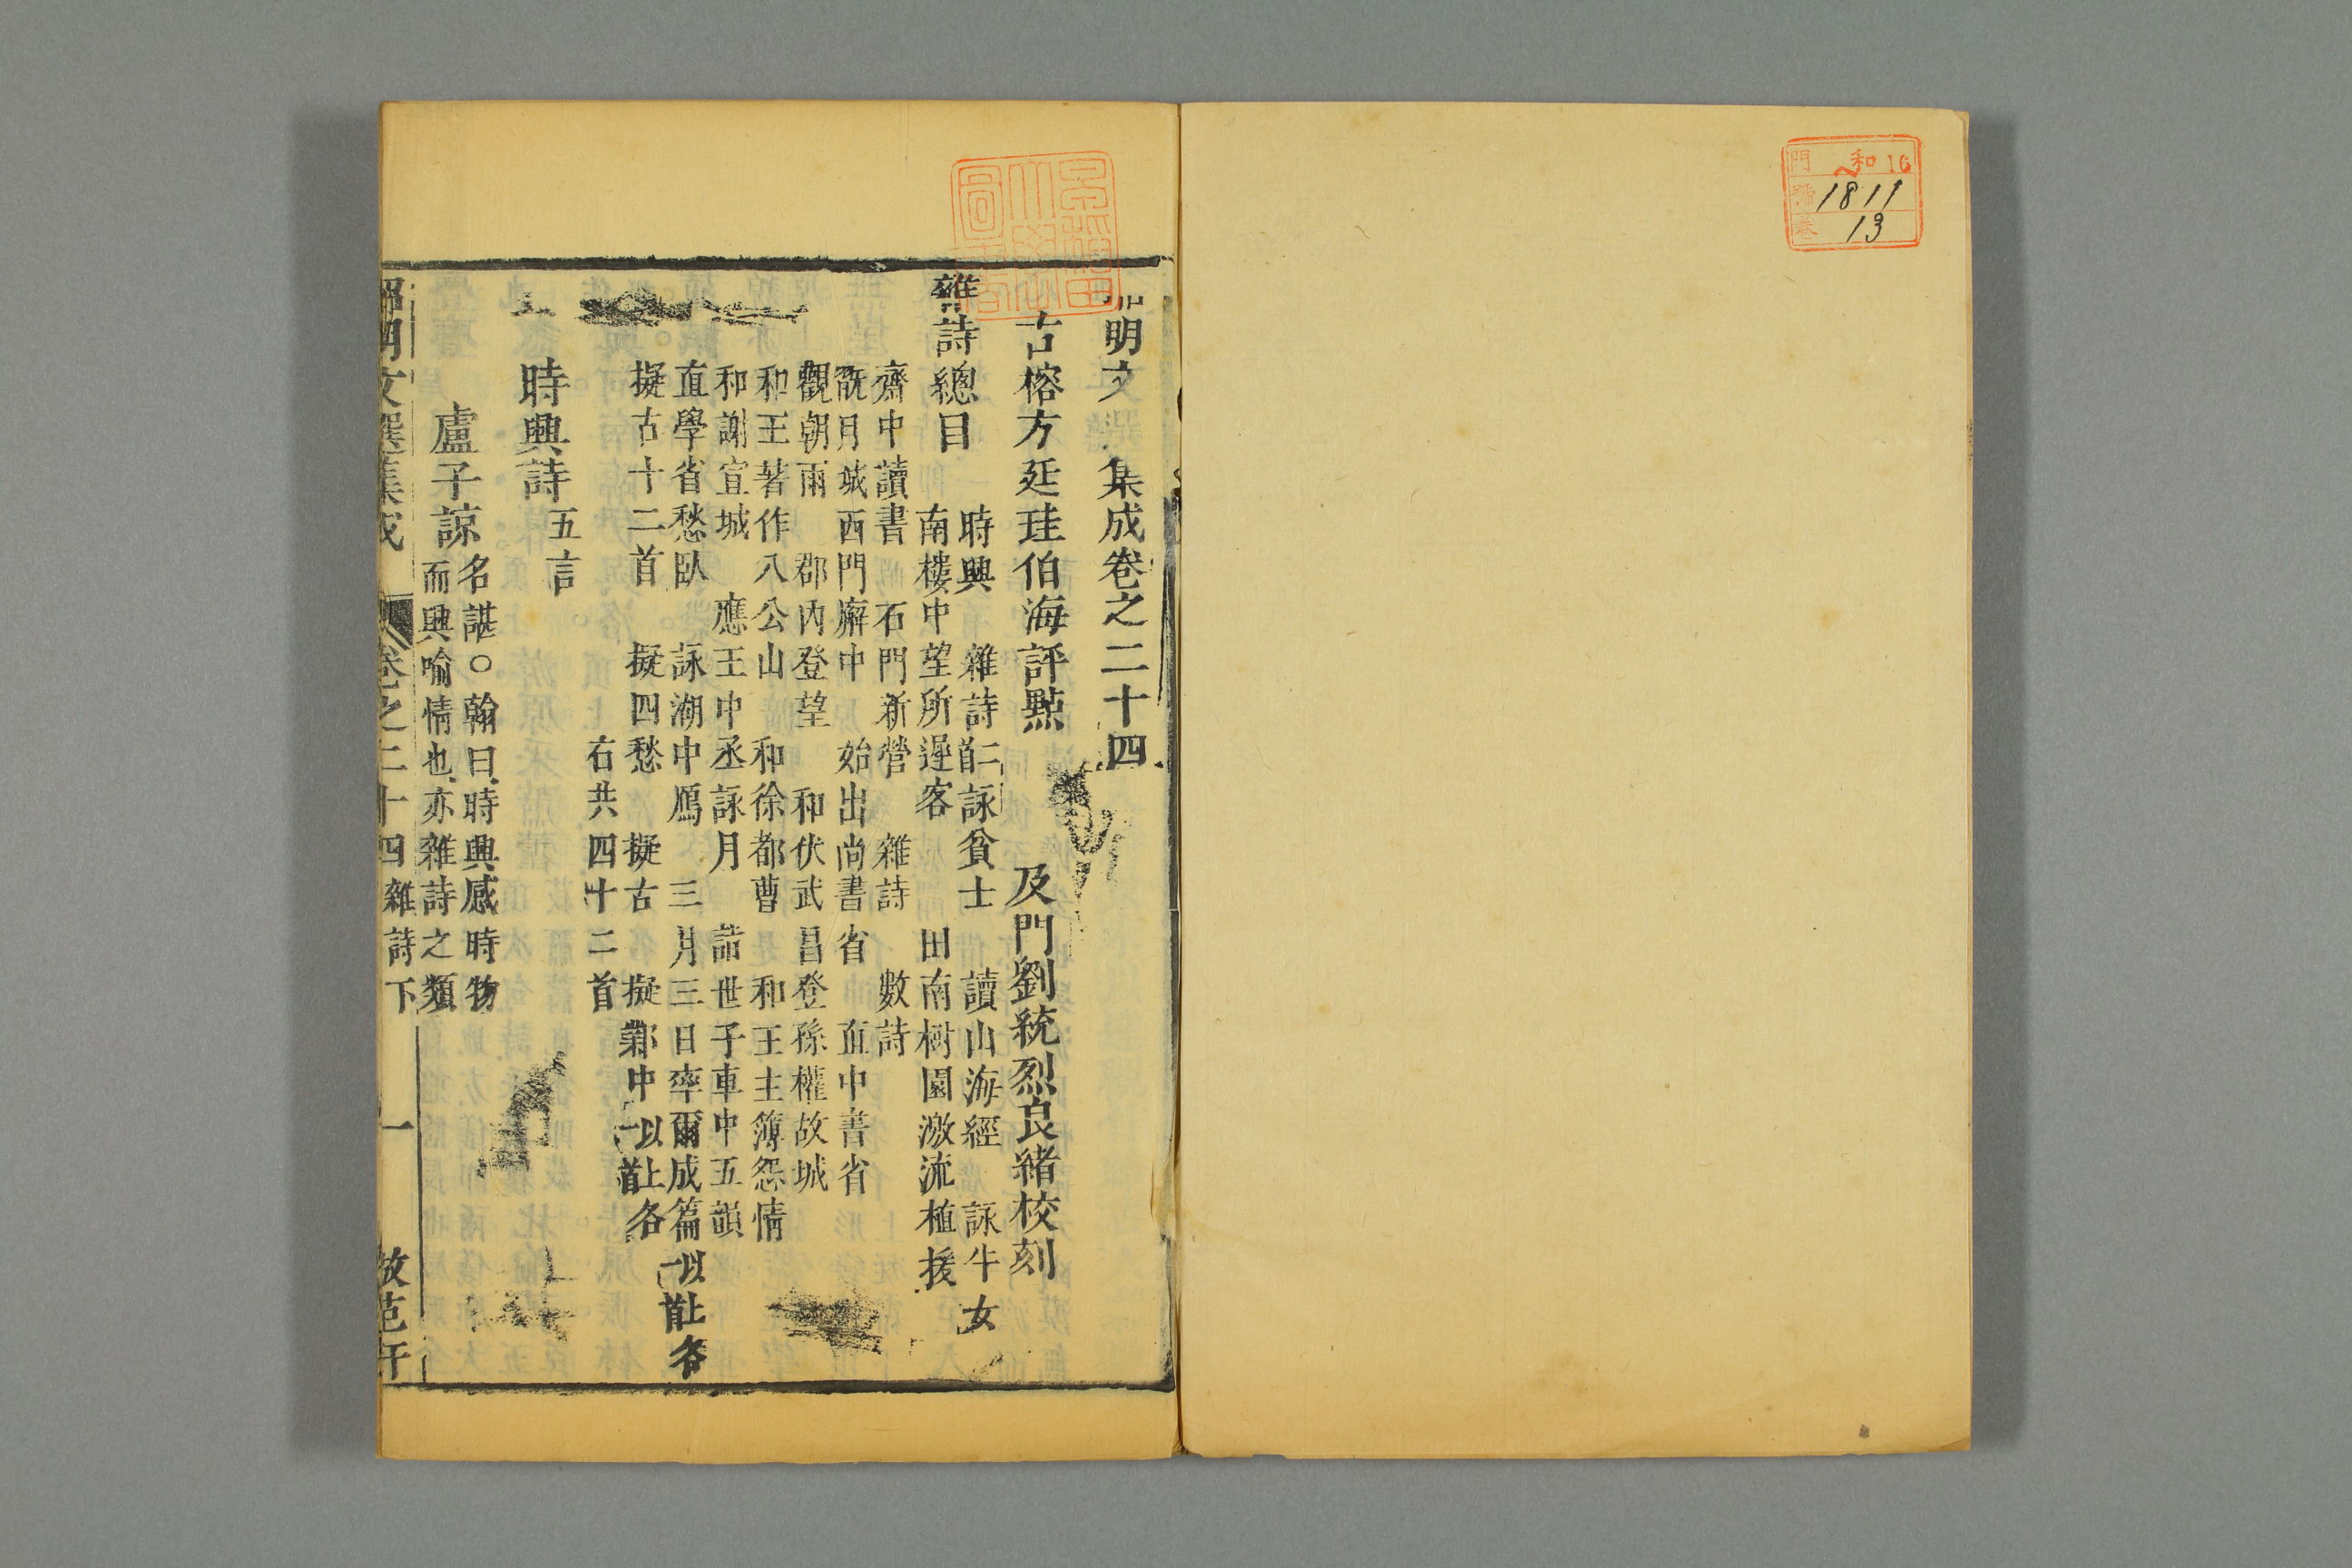 門 和 16
號 1811
卷 13
昭明文選集成卷之二十四
古榕方廷珪伯海評點 及門劉統烈良緒校刻
雜詩總目
時興 雜詩二首 詠貧士 讀山海經 詠牛女
南樓中望所遲客 田南樹園激流植援
齋中讀書 石門新營 雜詩 數詩
翫月城西門廨中 始出尚書省 直中書省
觀朝雨 郡內登望 和伏武昌登孫權故城
和王著作八公山 和徐都曹 和王主簿怨情
和謝宣城 應王中丞詠月 諮世子車中五韻
直學省愁臥 詠湖中鴈 三月三日率爾成篇以上各一首
擬古十二首 擬四愁 擬古 擬鄴中以上各一首
右共四十二首
時興詩五言
盧子諒名諶○翰曰、時興、感時物而興喻情也、亦雜詩之類
昭明文選集成 卷之二十四 雜詩下 一 倣范軒